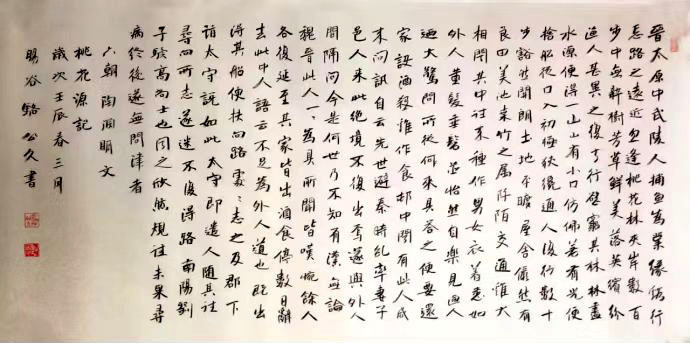 晉太原中武陵人捕魚為業緣溪行
忘路之遠近忽逢桃花林夾岸數百
步中無雜樹芳草鮮美落英繽紛
漁人甚異之復前行欲窮其林林盡
水源便得一山山有小口仿佛若有光便
捨船從口入初極狹纔通人復行數十
步豁然開朗土地平曠屋舍儼然有
良田美池桑竹之屬阡陌交通雞犬
相聞其中往來種作男女衣着悉如
外人黃髮垂髫並怡然自樂見漁人
迺大驚問所從何來具答之便要還
家設酒殺雞作食村中聞有此人咸
來問訊自云先世避秦時亂率妻子
邑人來此絕境不復出焉遂與外人
間隔問今是何世乃不知有漢無論
魏晉此人一一為具所聞皆嘆惋餘人
各復延至其家皆出酒食停數日辭
去此中人語云不足為外人道也既出
得其船便扶向路處處志之及郡下
詣太守說如此太守即遣人隨其往
尋向所志遂迷不復得路南陽劉
子驥高尚士也聞之欣然規往未果尋
病終後遂無問津者
六朝陶淵明文
桃花源記
歲次壬辰春三月
谷駱公久書